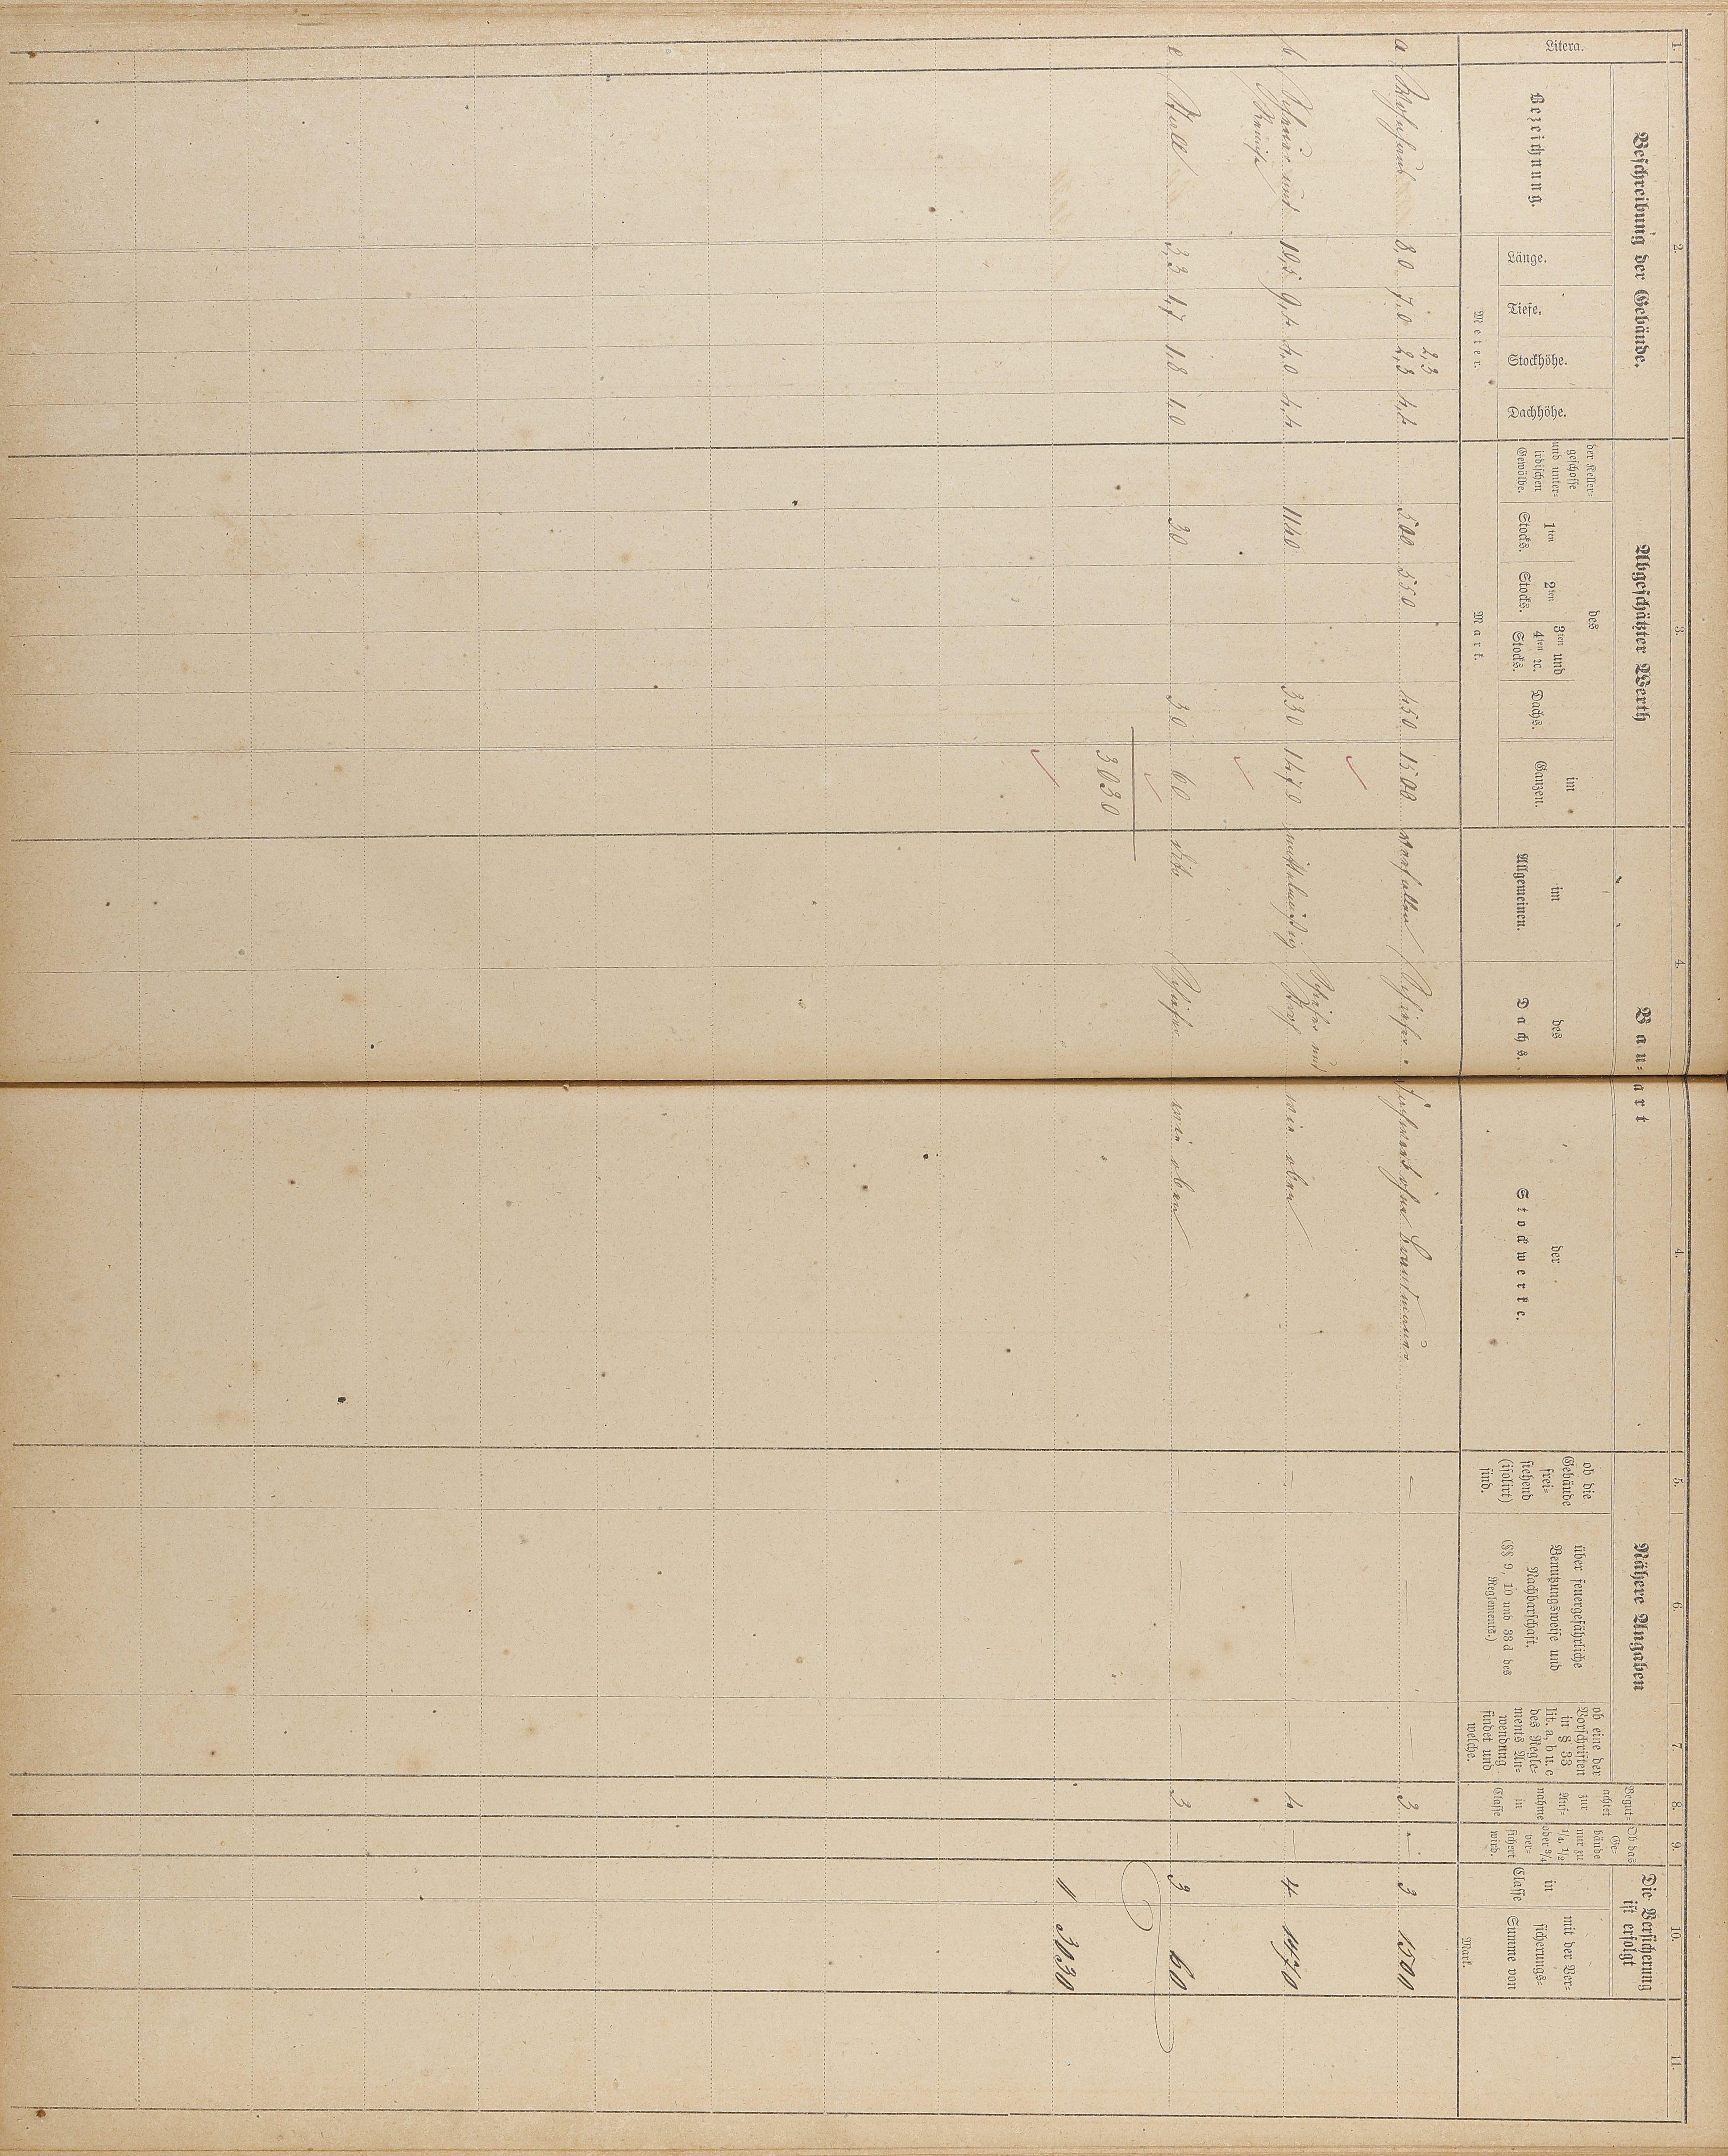 1. 2. 3. 4. 4. 5. 6. 7. 8. 9. 10. 11.
Litera.
Beschreibung der Gebäude.
Bezeichnung.
Länge.
Tiefe.
Stockhöhe.
Dachhöhe.
Meter.
Abgeschätzter Werth
des
der Keller-
geschosse
und unter-
irdischen
Gewölbe.
1ten
Stocks.
2ten
Stocks.
3ten und
4ten ꝛc.
Stocks.
Dachs.
im
Ganzen.
Mark.
Bau-art
im
Allgemeinen.
des
Dachs.
der
Stockwerke.
Nähere Angaben
ob die
Gebäude
frei-
stehend
(isolirt)
sind.
über feuergefährliche
Benutzungsweise und
Nachbarschaft.
(§§ 9, 10 und 33 d des
Reglements.)
ob eine der
Vorschriften
in § 33
lit. a, b u. c
des Regle-
ments An-
wendung
findet und
welche.
Begut-
achtet
zur
Auf-
nahme
in
Classe
Ob das
Ge-
bäude
nur zu
1/4, 1/2
oder 3/4
ver-
sichert
wird.
Die Versicherung
ist erfolgt
in
Classe
mit der Ver-
sicherungs-
Summe von
Mark.
2,3
a Wohnhaus 8,0 7,0 2,3 4,4 500 550 450 1500 verfallen Schiefer Fachwerk ohne Brandmauer — — — 3 — 3 1500
Schiefer und
b Scheune und 10,5 9,4 4,0 4,4 1140 330 1470 mittelmäßig Stroh wie oben — — — 4 — 4 1470
Remise
c Stall 3,3 1,7 1,8 1,0 30 30 60 dito Schiefer wie oben — — — 3 — 3 60
3030
3030